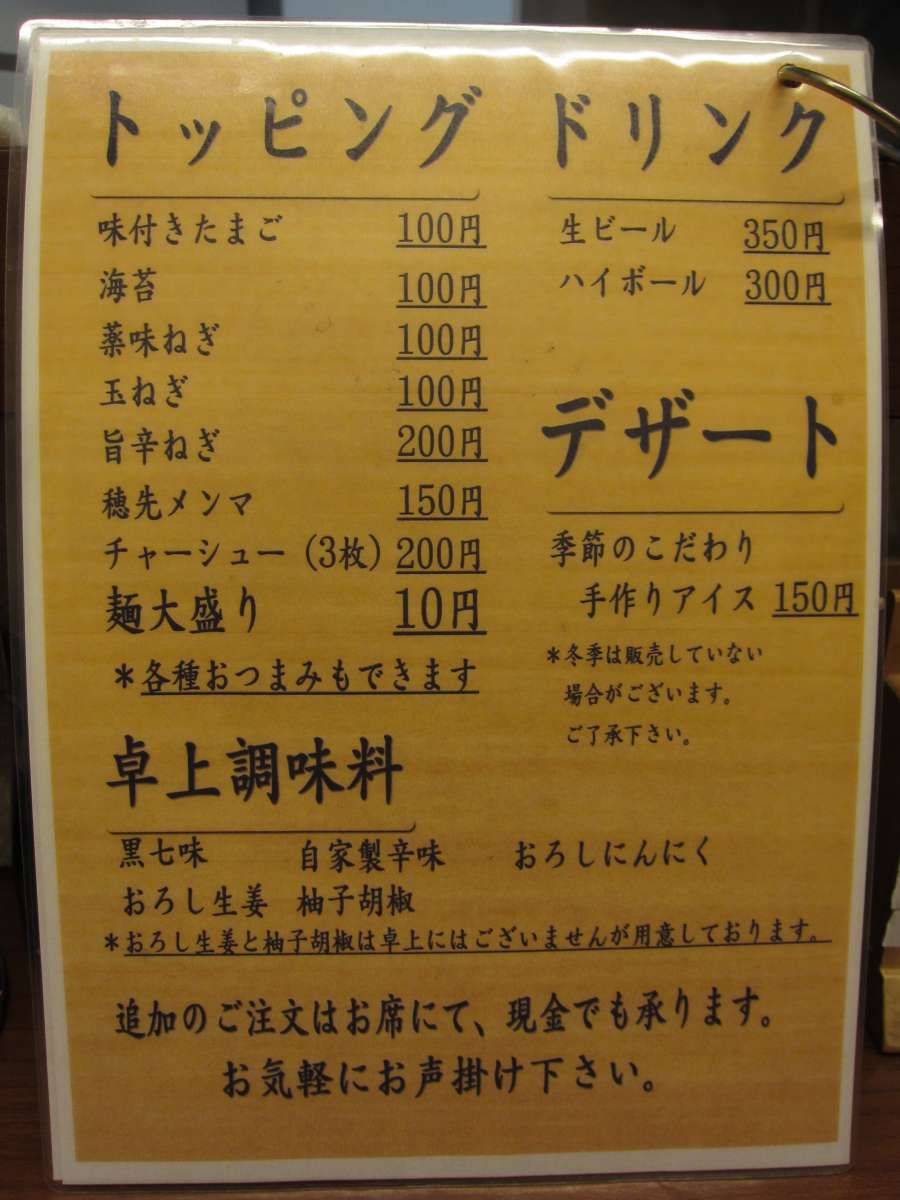 トッピング
味付きたまご 100円
海苔 100円
薬味ねぎ 100円
玉ねぎ 100円
旨辛ねぎ 200円
穂先メンマ 150円
チャーシュー（3枚） 200円
麺大盛り 10円
＊各種おつまみもできます
ドリンク
生ビール 350円
ハイボール 300円
デザート
季節のこだわり
手作りアイス 150円
＊冬季は販売していない
場合がございます。
ご了承下さい。
卓上調味料
黒七味 自家製辛味 おろしにんにく
おろし生姜 柚子胡椒
＊おろし生姜と柚子胡椒は卓上にはございませんが用意しております。
追加のご注文はお席にて、現金でも承ります。
お気軽にお声掛け下さい。